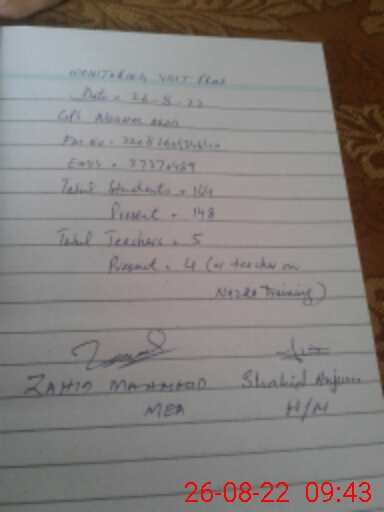 MONITORING VISIT
Date = 26-8-22
GPS
EMIS = 37370489
Total Students = 164
Present = 148
Total Teachers = 5
Present = 4 (or teacher on
Nazra Training)
ZAHID MAHMOOD Shahid Anjum
MEA H/M
26-08-22 09:43